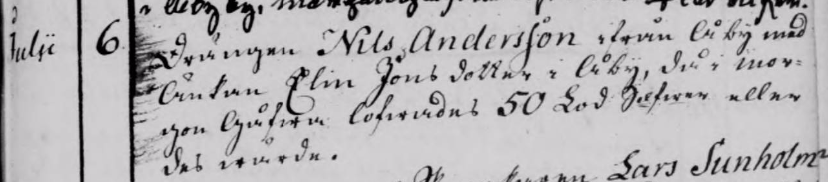 Julii 6. Drängen Nils Andersson ifrån Låby med
Änkan Elin Jons dotter i Låby, då i mor-
gon gåfwa lofwades 50 Lod Silfwer eller
des wärde.
Lars Sunholm